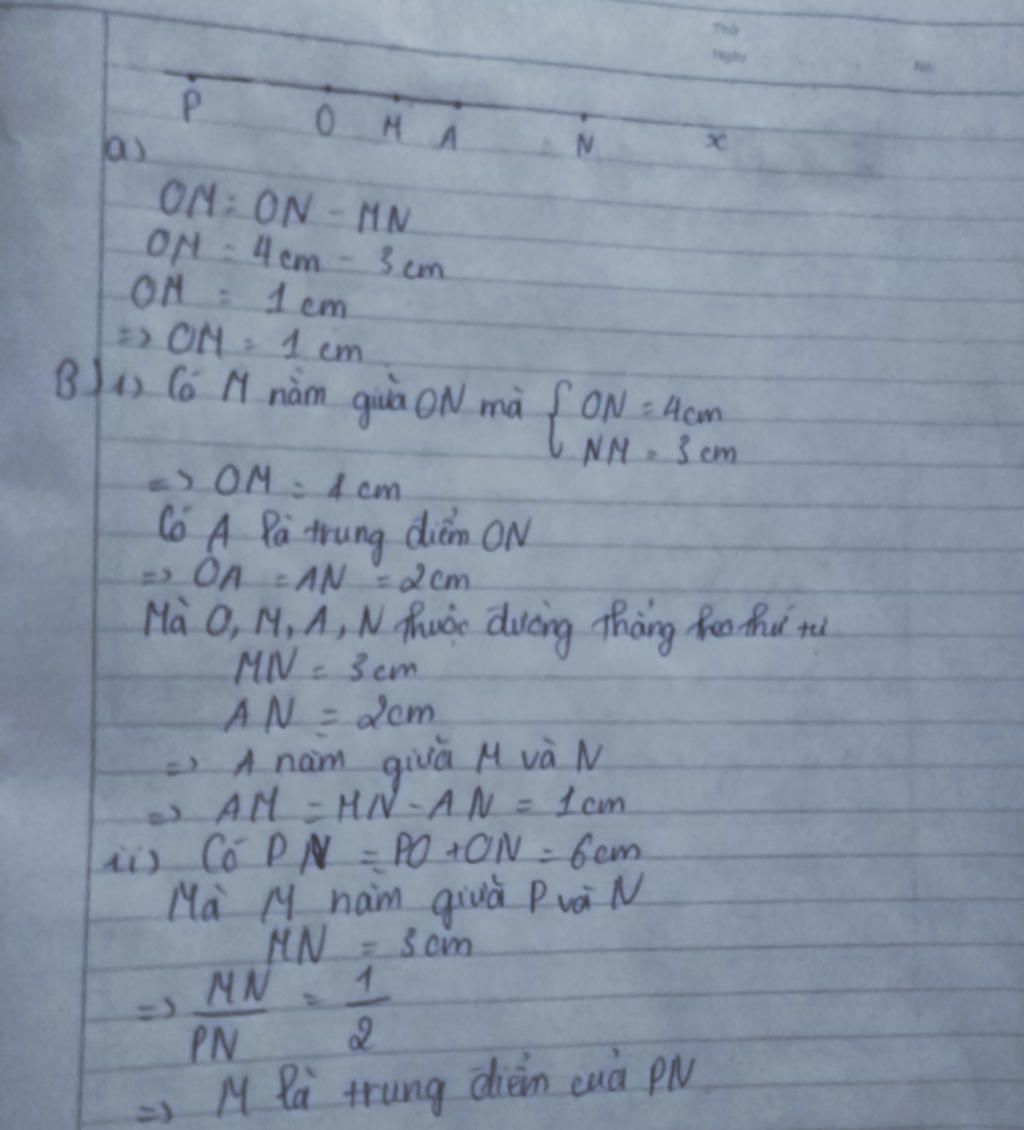 Thứ
Ngày No
P O M A N x
a)
OM = ON - MN
OM = 4cm - 3cm
OM = 1cm
=> OM = 1cm
B) i) Có M nằm giữa ON mà { ON = 4cm
NM = 3cm
=> OM = 1cm
Có A là trung điểm ON
=> OA = AN = 2cm
Mà O, M, A, N thuộc đường thẳng theo thứ tự
MN = 3cm
AN = 2cm
=> A nằm giữa M và N
=> AM = MN - AN = 1cm
ii) Có PN = PO + ON = 6cm
Mà M nằm giữa P và N
MN = 3cm
=> MN/PN = 1/2
=> M là trung điểm của PN